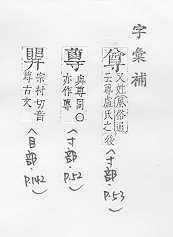 字彙補
又姓風俗通
云尊盧氏之後
(寸部·P.53)
與尊同○
亦作
(寸部·P.52)
宗村切音
尊古文
(目部·P.142)